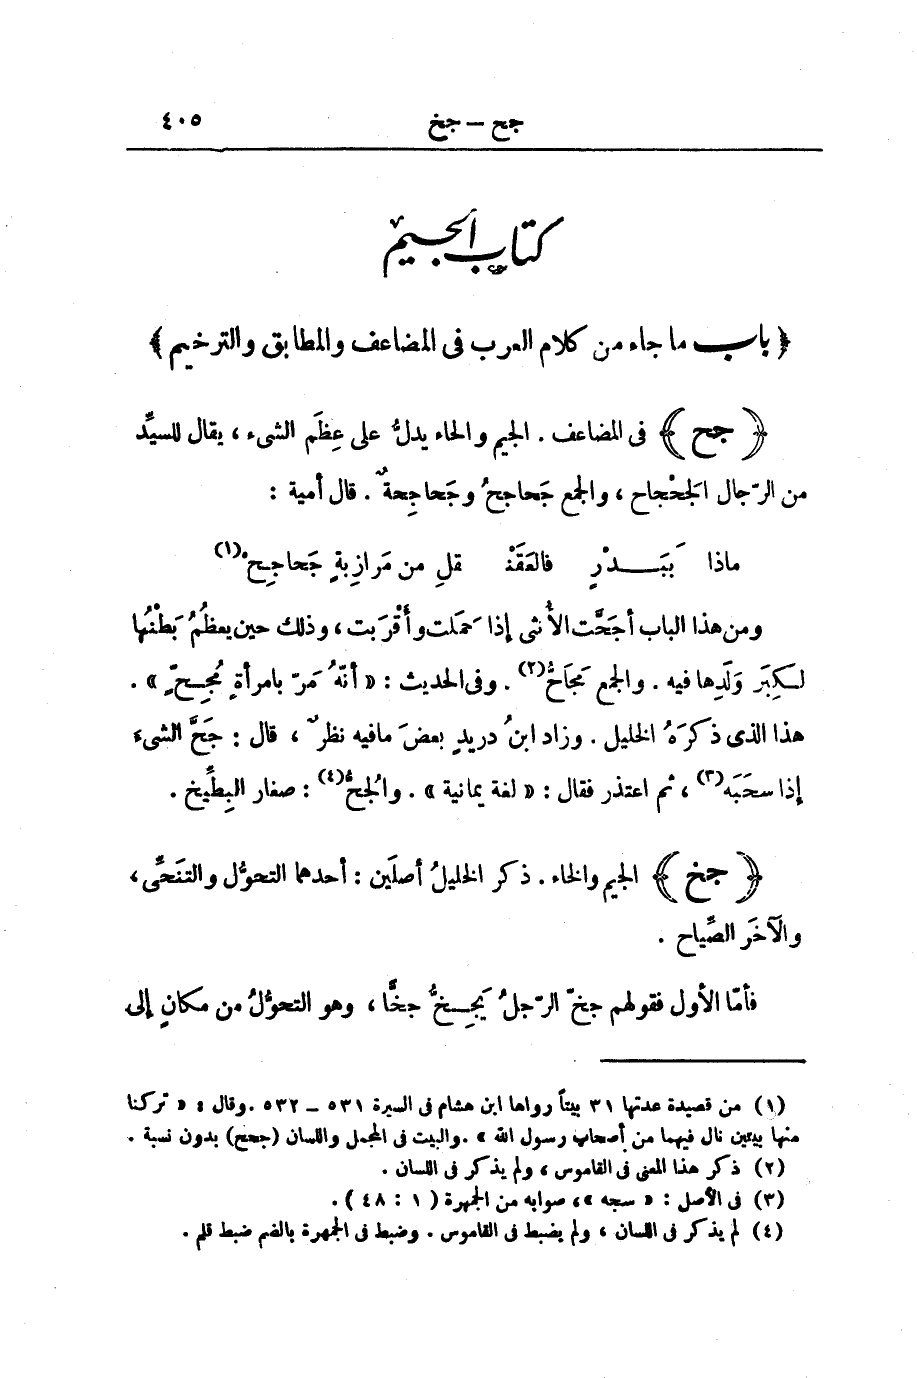 جح – جخ ٤٠٥
كتاب الجيم
﴿ باب ما جاء من كلام العرب فى المضاعف والمطابق والترخيم ﴾
﴿ جح ﴾ فى المضاعف . الجيم والحاء يدلُّ على عِظَم الشىء ، يقال للسيِّد
من الرّجال الجَحْجاح ، والجمع جَحاجحُ وجَحاجِحةٌ . قال أمية :
ماذا بَبَــدْرٍ فالعَقَنْـ قلِ من مَرازِبةٍ جَحاجِحْ(١)
ومن هذا الباب أجَحَّت الأُنثى إذا حَمَلت وأَقْرَبت ، وذلك حين يعظُمُ بَطْنُها
لكِبَر وَلَدِها فيه . والجمع مَجَاحُّ(٢) . وفى الحديث : « أنّهُ مَرّ بامرأةٍ مُجِحّ » .
هذا الذى ذكرَهُ الخليل . وزاد ابنُ دريدٍ بعضَ مافيه نظرٌ ، قال : جَحَّ الشىءَ
إذا سحَبَه(٣) ، ثم اعتذر فقال : « لغة يمانية » . والجُحُّ(٤) : صغار البِطِّيخ .
﴿ جخ ﴾ الجيم والخاء . ذكر الخليلُ أصلَين : أحدهما التحوُّل والتنَحِّى ،
والآخَر الصِّياح .
فأمّا الأول فقولهم جخّ الرّجلُ يَجِــخُّ جخًّا ، وهو التحوُّلُ من مكانٍ إلى
(١) من قصيدة عدتها ٣١ بيتاً رواها ابن هشام فى السيرة ٥٣١ – ٥٣٢ .وقال : « تركنا
منها بيتين نال فيهما من أصحاب رسول الله » .والبيت فى المجمل واللسان (جحح) بدون نسبة .
(٢) ذكر هذا المعنى فى القاموس ، ولم يذكر فى اللسان .
(٣) فى الأصل : « سجه »، صوابه من الجمهرة ( ١ : ٤٨ ) .
(٤) لم يذكر فى اللسان ، ولم يضبط فى القاموس . وضبط فى الجمهرة بالضم ضبط قلم .